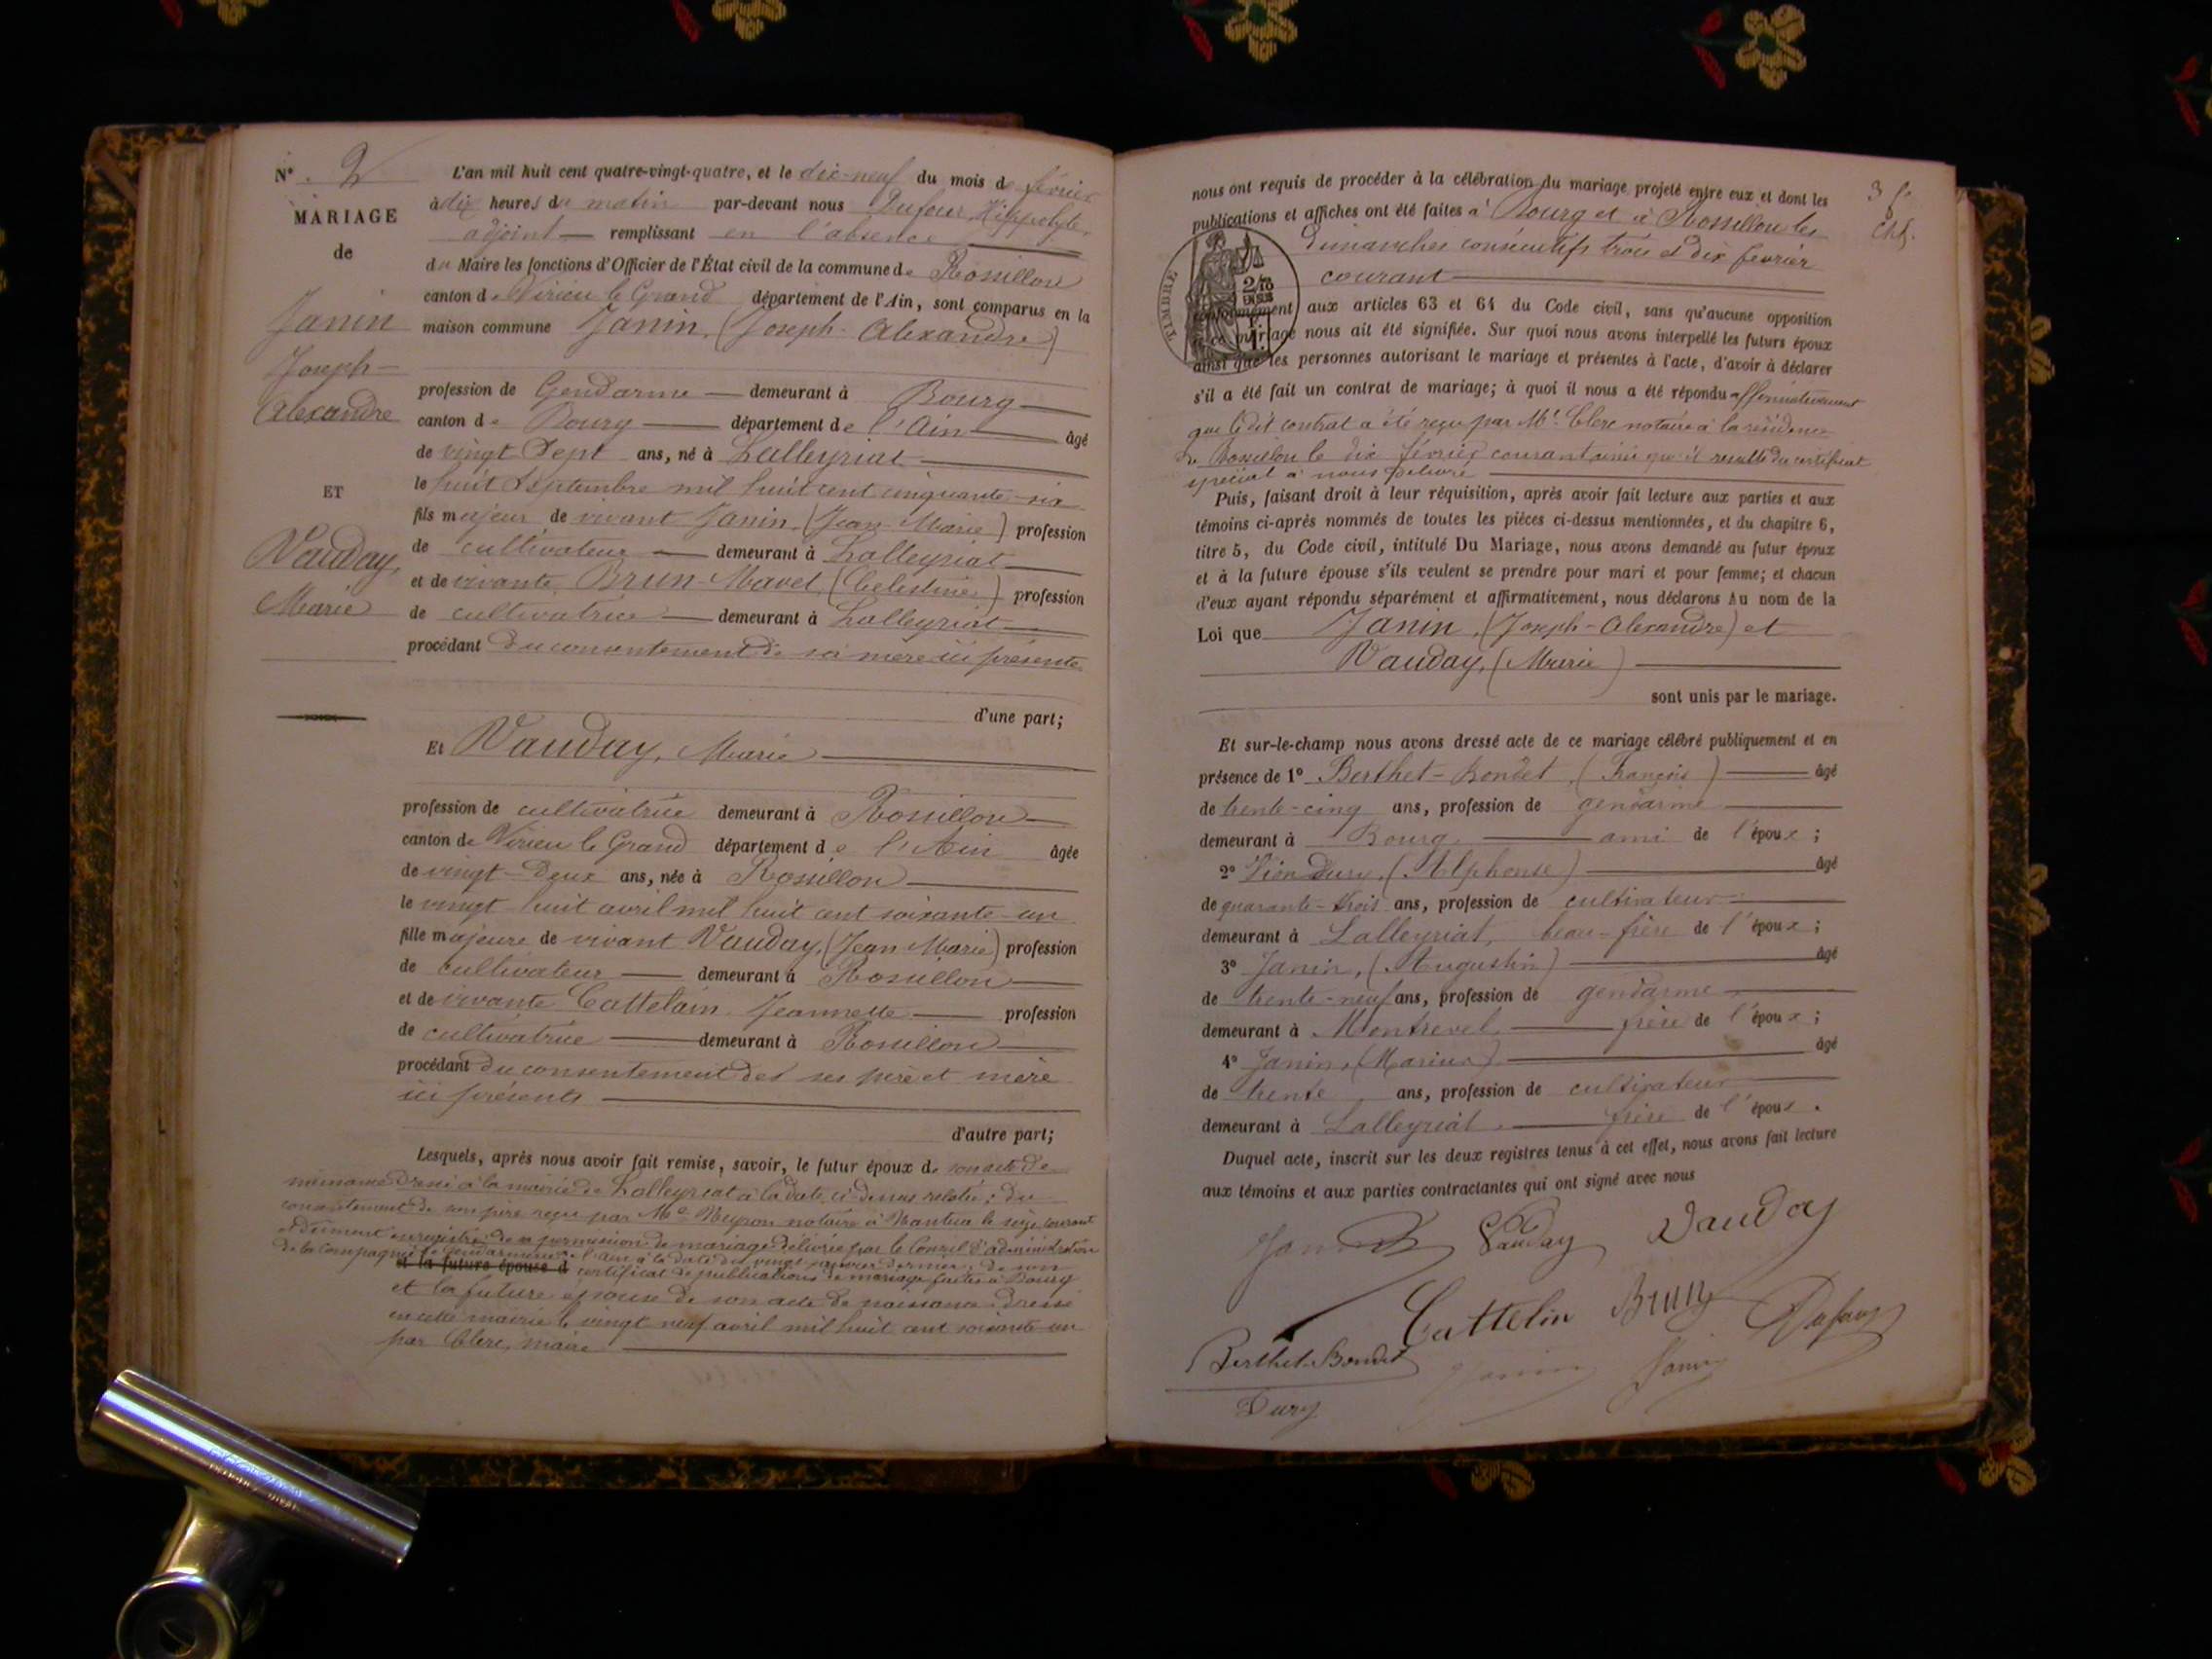 N° 2
MARIAGE
de
Janin
Joseph-
Alexandre
ET
Vauday,
Marie
L'an mil huit cent quatre-vingt-quatre, et le dix-neuf du mois de février
à dix heures du matin par-devant nous Dufour, Hippolyte,
adjoint remplissant en l'absence
du Maire les fonctions d'Officier de l'État civil de la commune de Rossillon
canton de Virieu le Grand département de l'Ain, sont comparus en la
maison commune Janin, (Joseph-Alexandre)
profession de Gendarme demeurant à Bourg
canton de Bourg département de l'Ain âgé
de vingt sept ans, né à Lalleyriat
le huit septembre mil huit cent cinquante-six
fils majeur de vivant Janin, (Jean-Marie) profession
de cultivateur demeurant à Lalleyriat
et de vivante, Brun-Mavet, (Célestine) profession
de cultivatrice demeurant à Lalleyriat
procédant du consentement de sa mère ici présente
d'une part;
Et Vauday, Marie
profession de cultivatrice demeurant à Rossillon
canton de Virieu le Grand département de l'Ain âgée
de vingt-deux ans, née à Rossillon
le vingt huit avril mil huit cent soixante-un
fille majeure de vivant Vauday, (Jean Marie) profession
de cultivateur demeurant à Rossillon
et de vivante Cattelain Jeannette profession
de cultivatrice demeurant à Rossillon
procédant du consentement des ses père et mère
ici présents
d'autre part;
Lesquels, après nous avoir fait remise, savoir, le futur époux de son acte de
naissance dressé à la mairie de Lalleyriat à la date ci-dessus relatée; du
consentement de son père reçu par Me Neyron notaire à Nantua le seize courant
et dûment enregistré; de sa permission de mariage délivrée par le Conseil d'administration
de la compagnie de Gendarmerie de l'Ain à la date du vingt janvier dernier; de son
et la future épouse d certificat de publications de mariage faites à Bourg
et la future épouse de son acte de naissance dressé
en cette mairie le vingt neuf avril mil huit cent soixante-un
par Clerc, maire
3 f.
nous ont requis de procéder à la célébration du mariage projeté entre eux et dont les
publications et affiches ont été faites à Bourg et à Rossillon les
dimanches consécutifs trois et dix février
courant
TIMBRE
conformément aux articles 63 et 64 du Code civil, sans qu'aucune opposition
à ce mariage nous ait été signifiée. Sur quoi nous avons interpellé les futurs époux
ainsi que les personnes autorisant le mariage et présentes à l'acte, d'avoir à déclarer
s'il a été fait un contrat de mariage; à quoi il nous a été répondu affirmativement
que le dit contrat a été reçu par Me Clerc notaire à la résidence
de Rossillon le dix février courant ainsi qu'il résulte du certificat
spécial à nous délivré
Puis, faisant droit à leur réquisition, après avoir fait lecture aux parties et aux
témoins ci-après nommés de toutes les pièces ci-dessus mentionnées, et du chapitre 6,
titre 5, du Code civil, intitulé Du Mariage, nous avons demandé au futur époux
et à la future épouse s'ils veulent se prendre pour mari et pour femme; et chacun
d'eux ayant répondu séparément et affirmativement, nous déclarons Au nom de la
Loi que Janin, (Joseph-Alexandre) et
Vauday, (Marie)
sont unis par le mariage.
Et sur-le-champ nous avons dressé acte de ce mariage célébré publiquement et en
présence de 1° Berthet-Bondet, (François) âgé
de trente-cinq ans, profession de gendarme
demeurant à Bourg ami de l'époux;
2° (Alphonse) âgé
de quarante-trois ans, profession de cultivateur
demeurant à Lalleyriat, beau-frère de l'époux;
3° Janin, (Augustin) âgé
de trente-neuf ans, profession de gendarme
demeurant à Montrevel frère de l'époux;
4° Janin, (Marius) âgé
de trente ans, profession de cultivateur
demeurant à Lalleyriat frère de l'époux.
Duquel acte, inscrit sur les deux registres tenus à cet effet, nous avons fait lecture
aux témoins et aux parties contractantes qui ont signé avec nous
Janin Vauday Vauday
Cattelin Brun Dufour
Berthet-Bondet Janin Janin
Dury